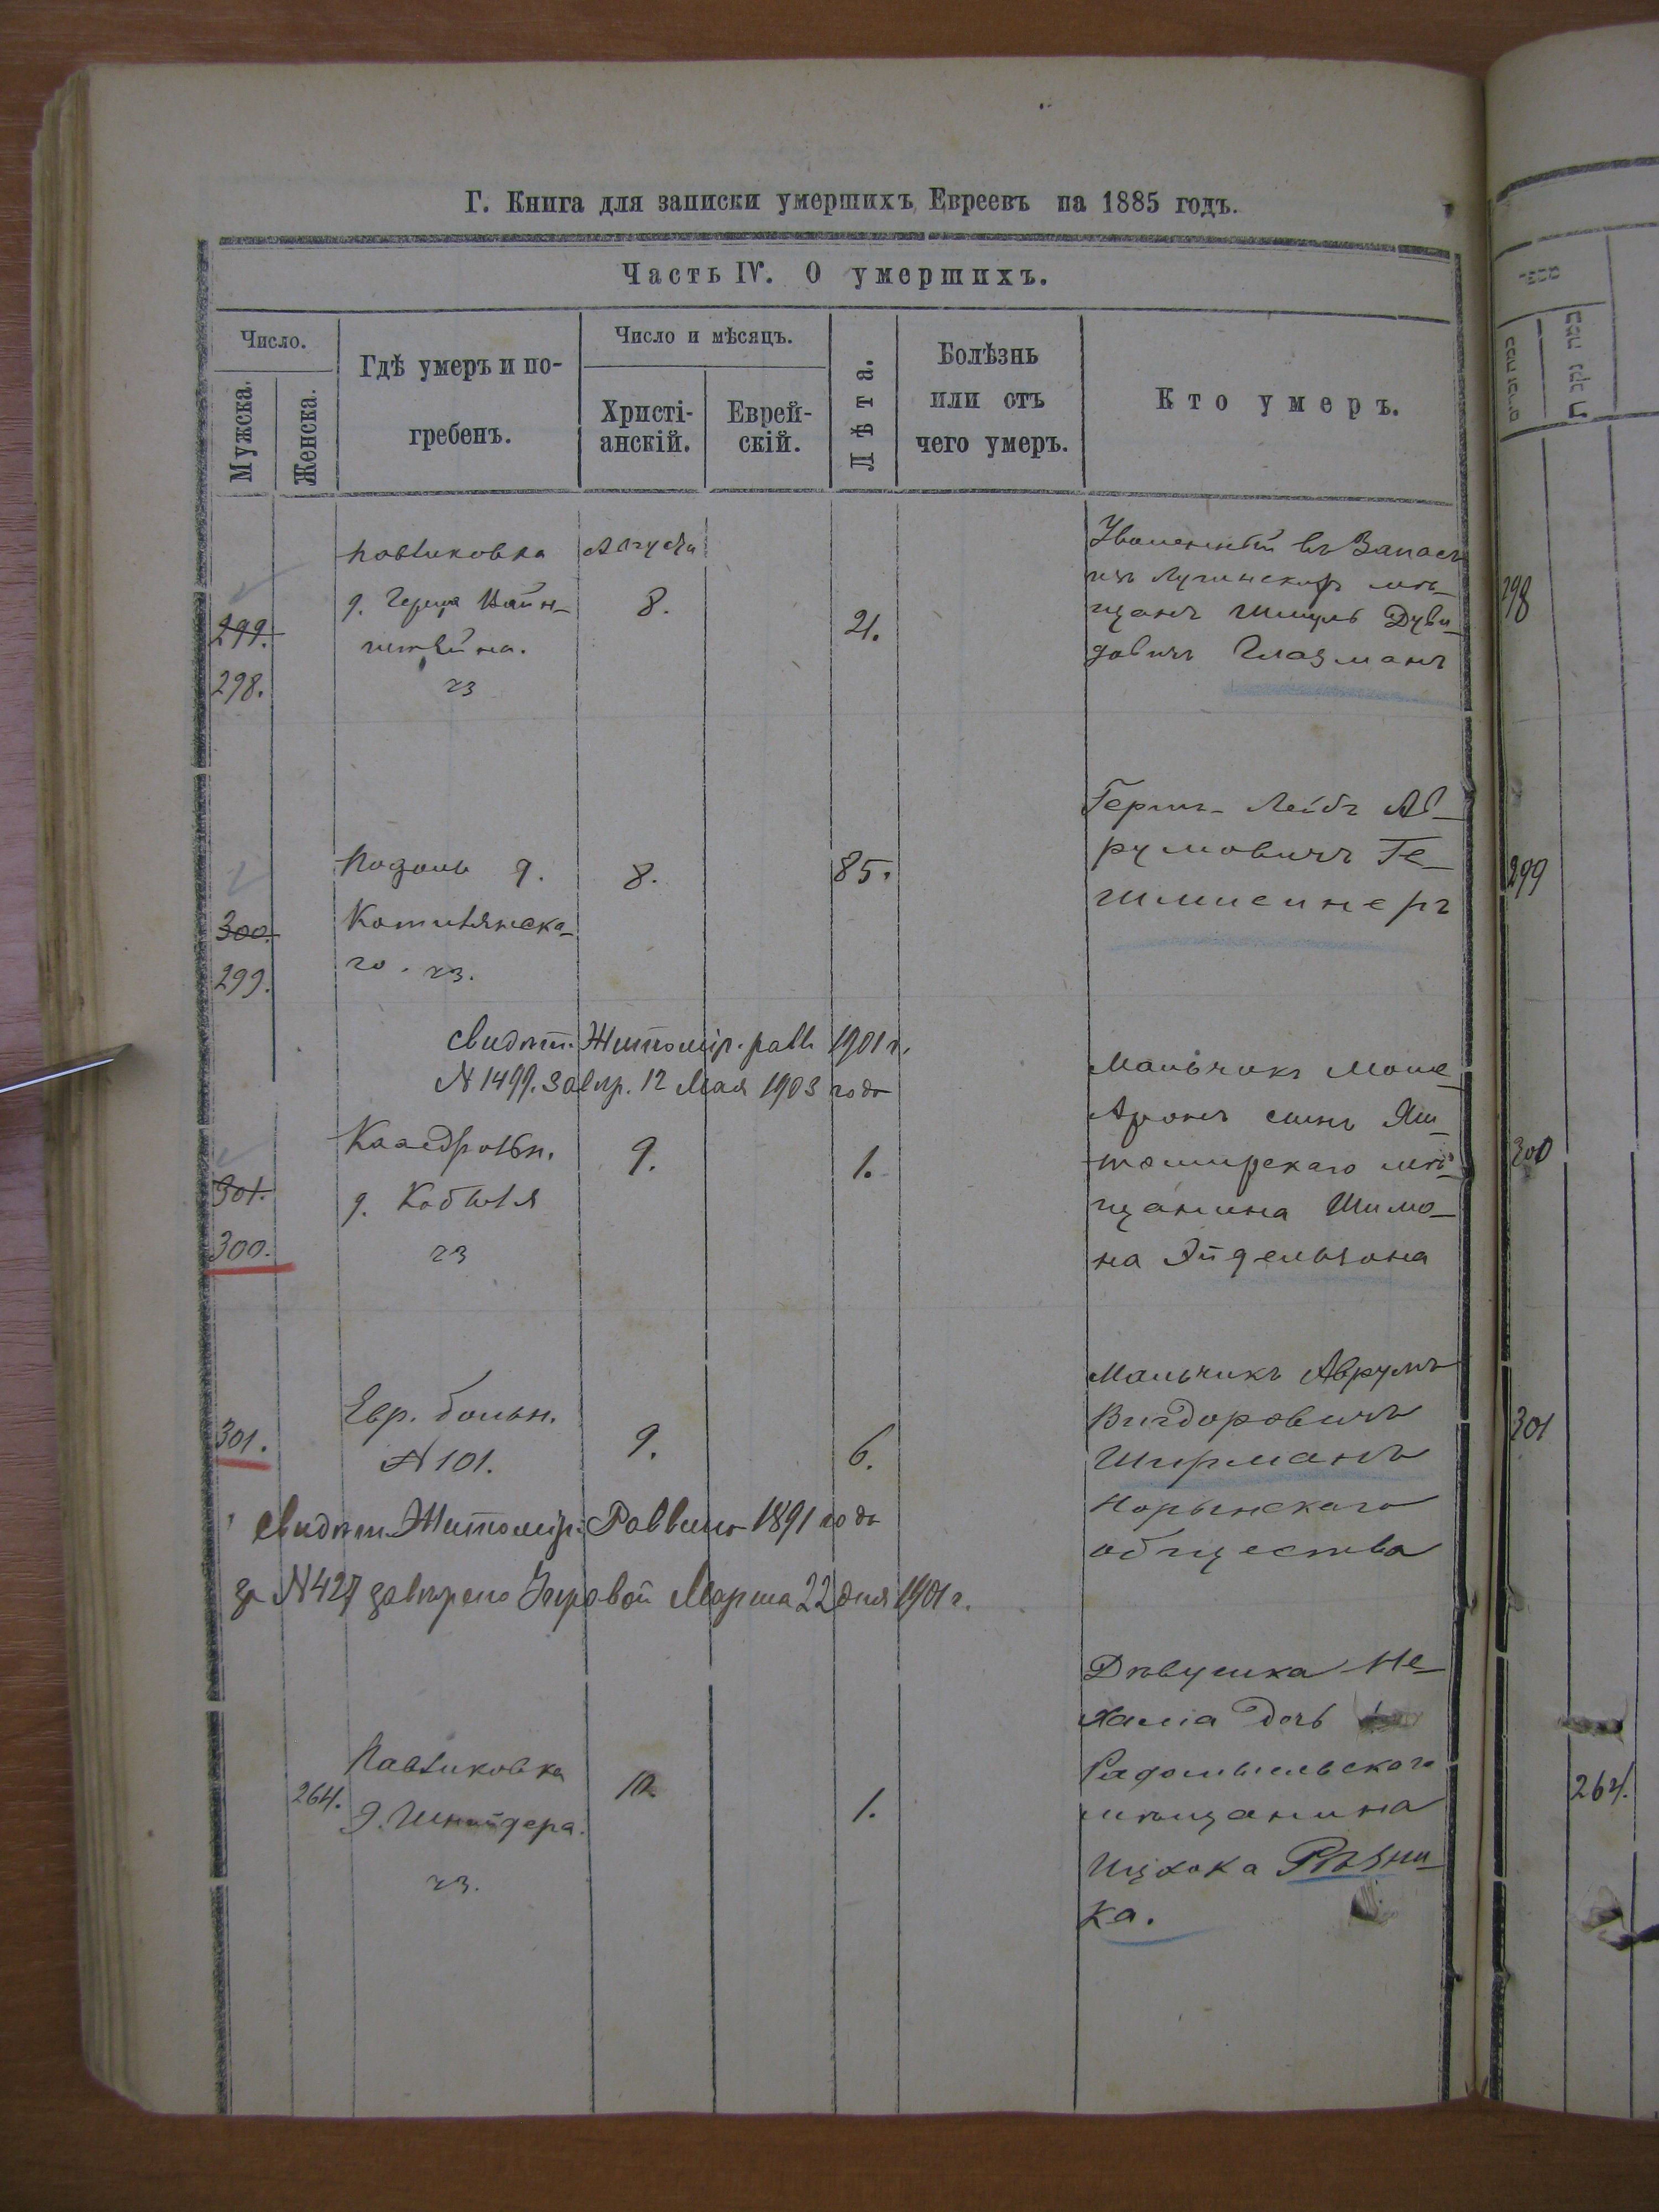 Г. Книга для записки умершихъ Евреевъ на 1885 годъ.
Часть IV. О умершихъ.
Число.
Мужска.
Женска.
Гдѣ умеръ и по-
гребенъ.
Число и мѣсяцъ.
Христі-
анскій.
Еврей-
скій.
Лѣта.
Болѣзнь
или отъ
чего умеръ.
Кто умеръ.
299.
298.
Павликовка
д. Герша Вайн-
штейна.
Августа
8.
21.
Уволенный въ Запасъ
изъ Лугинскихъ мѣ-
щанъ Шмуль Дуви-
довичъ Глазманъ
298
300.
299.
Подоль д.
го.
8.
85.
Герш-Лейбъ Ав-
румовичъ Ге-
299
свидѣт. Житомір. равв. 1901 г.
N 1499. завѣр. 12 Мая 1903 года
301.
300.
Каѳедральн.
д.
9.
1.
Мальчикъ Моше
Аронъ сынъ Жи-
томирскаго мѣ-
щанина Шимо-
на Эйдельзона
300
301.
Евр. больн.
N 101.
9.
6.
Мальчикъ Аврумъ
Вигдоровичъ
Ширманъ
Норынскаго
общества
301
свидѣт. Житомір. Раввина 1891 года
за N 427 завѣрено Управой Марта 22 дня 1901 г.
264.
Павликовка
д. Шнайдера.
10
1.
Дѣвушка Не-
хама дочь
Радомысльскаго
мѣщанина
Ицхока Рѣзни-
ка.
264.